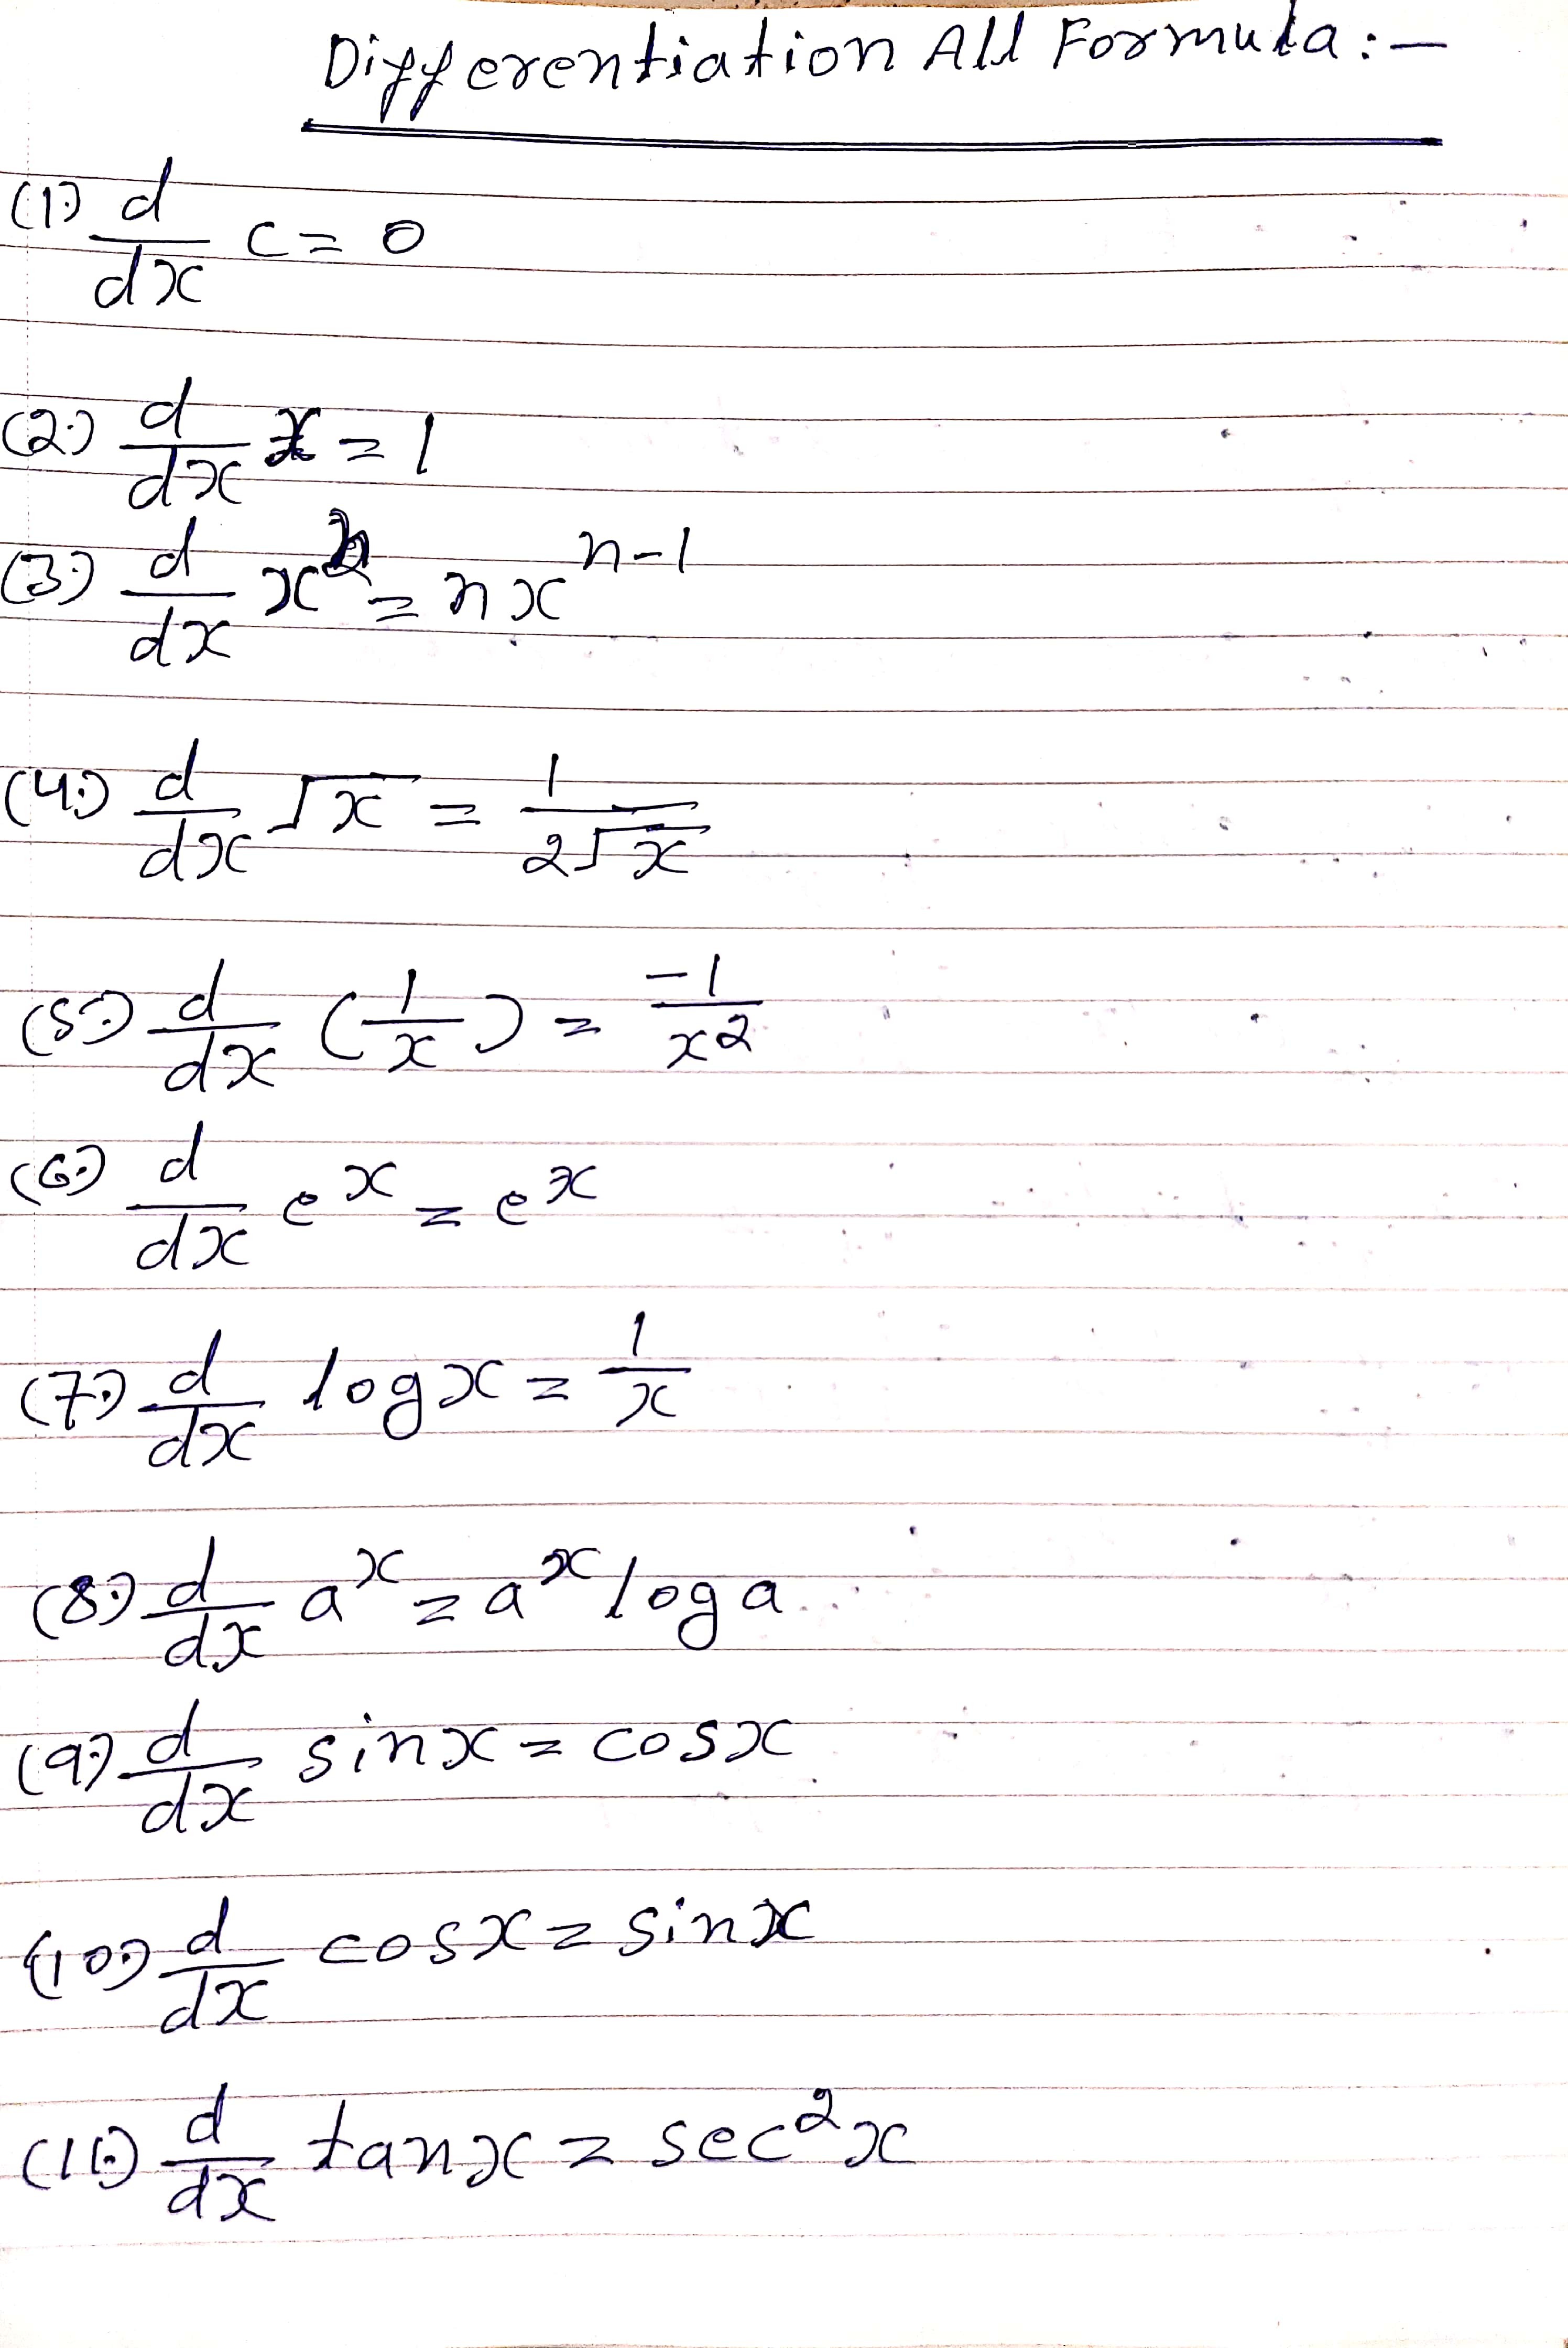 Differentiation All Formula:-
(1.) d/dx c = 0
(2.) d/dx x = 1
(3.) d/dx x^n = nx^(n-1)
(4.) d/dx √x = 1/(2√x)
(5.) d/dx (1/x) = -1/x2
(6.) d/dx e^x = e^x
(7.) d/dx logx = 1/x
(8.) d/dx a^x = a^x loga
(9.) d/dx sinx = cosx
(10.) d/dx cosx = sinx
(11.) d/dx tanx = sec^2x